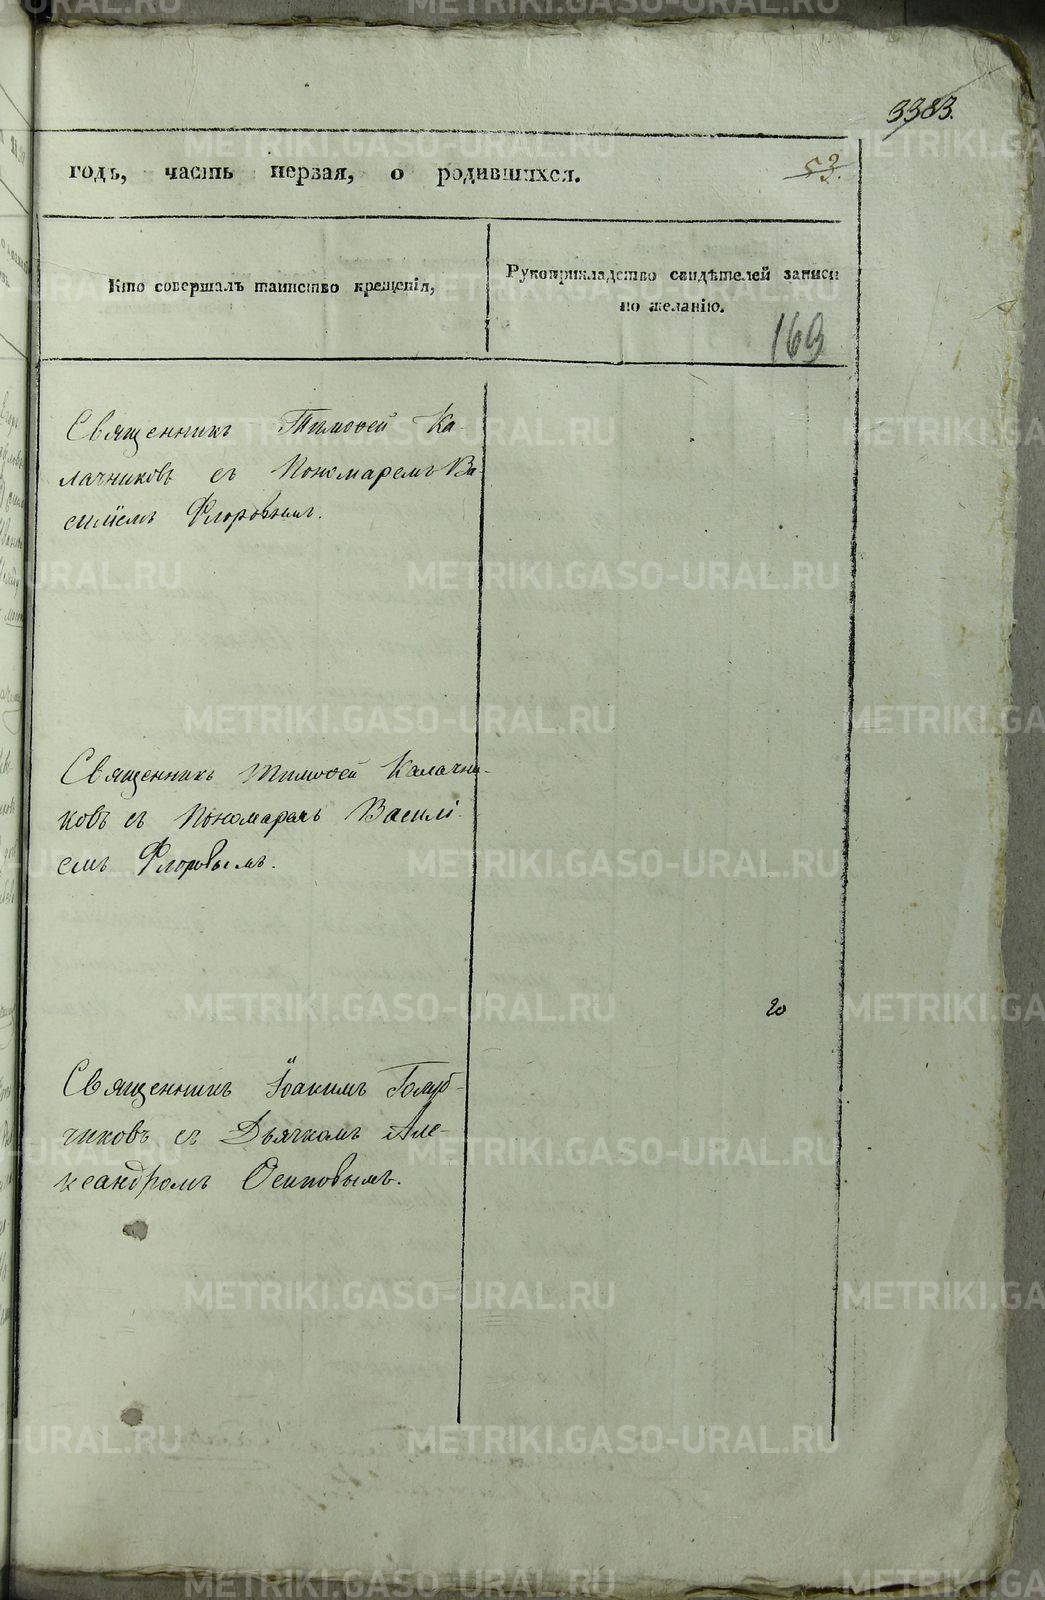 3383.
53.
годъ, часть первая, о родившихся.
Кто совершалъ таинство крещенія,
Рукоприкладство свидѣтелей записи
по желанію.
169
Священникъ Тимоѳей Ка-
лачниковъ съ Пономаремъ Ва-
силіемъ Флоровымъ.
Священникъ Тимоѳей Калачни-
ковъ съ Пономаремъ Василі-
емъ Флоровымъ.
20
Священникъ Іоакимъ Голуб-
чиковъ съ Дьячкомъ Але-
ксандромъ Осиповымъ.
METRIKI.GASO-URAL.RU